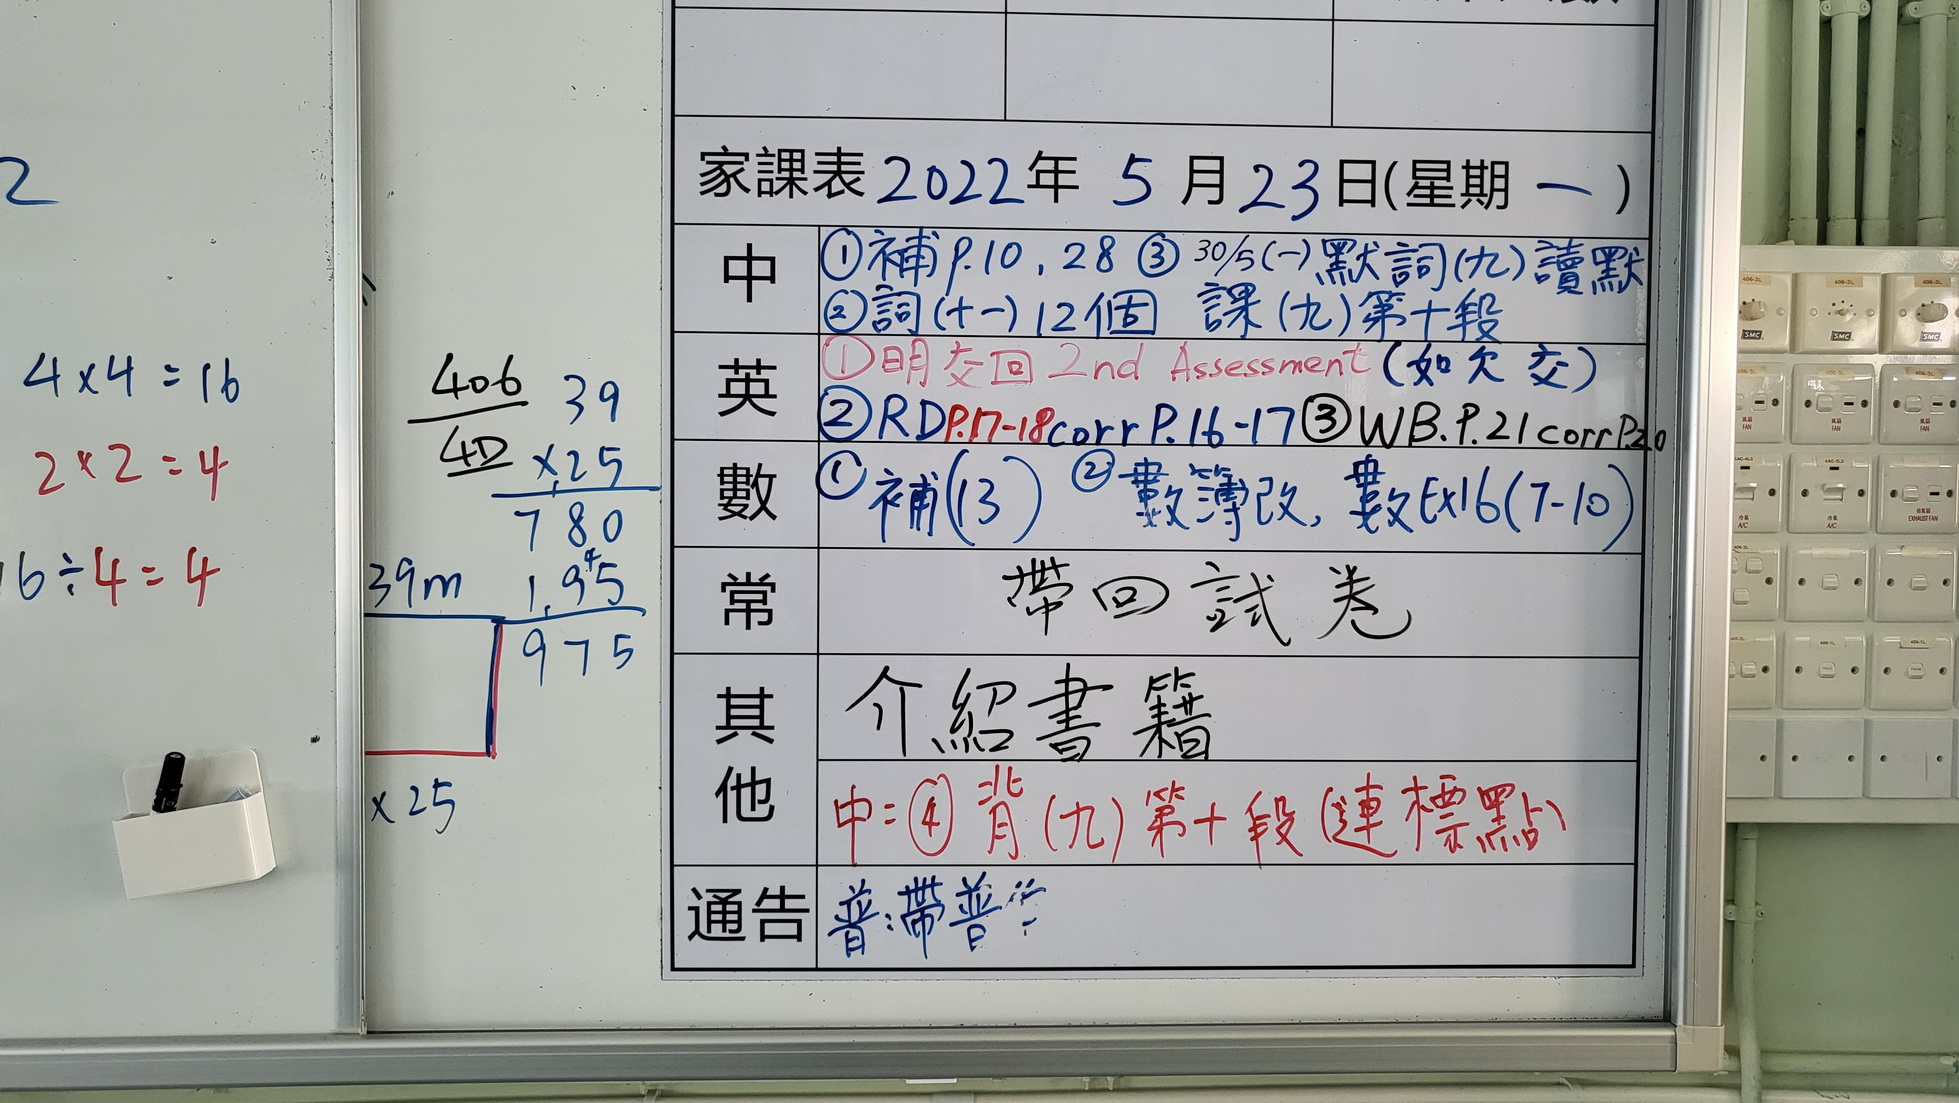 2
4×4=16
2×2=4
16÷4=4
406
4D
39
×25
780
1,95
975
39m
×25
家課表2022年5月23日(星期一)
中
①補P.10,28 ③30/5(一)默詞(九)讀默
②詞(十一)12個 課(九)第十段
英
①明交回2nd Assessment(如欠交)
②RDP.17-18corrP.16-17③WB.P.21corrP.20
數
①補(13) ②數簿改,數Ex16(7-10)
常
帶回試卷
其他
介紹書籍
中:④背(九)第十段(連標點)
通告
普:帶普
406-3L
406-3L
406-3L
SMC
SMC
SMC
風扇
FAN
風扇
FAN
風扇
FAN
冷氣
A/C
冷氣
A/C
抽氣扇
EXHAUST FAN